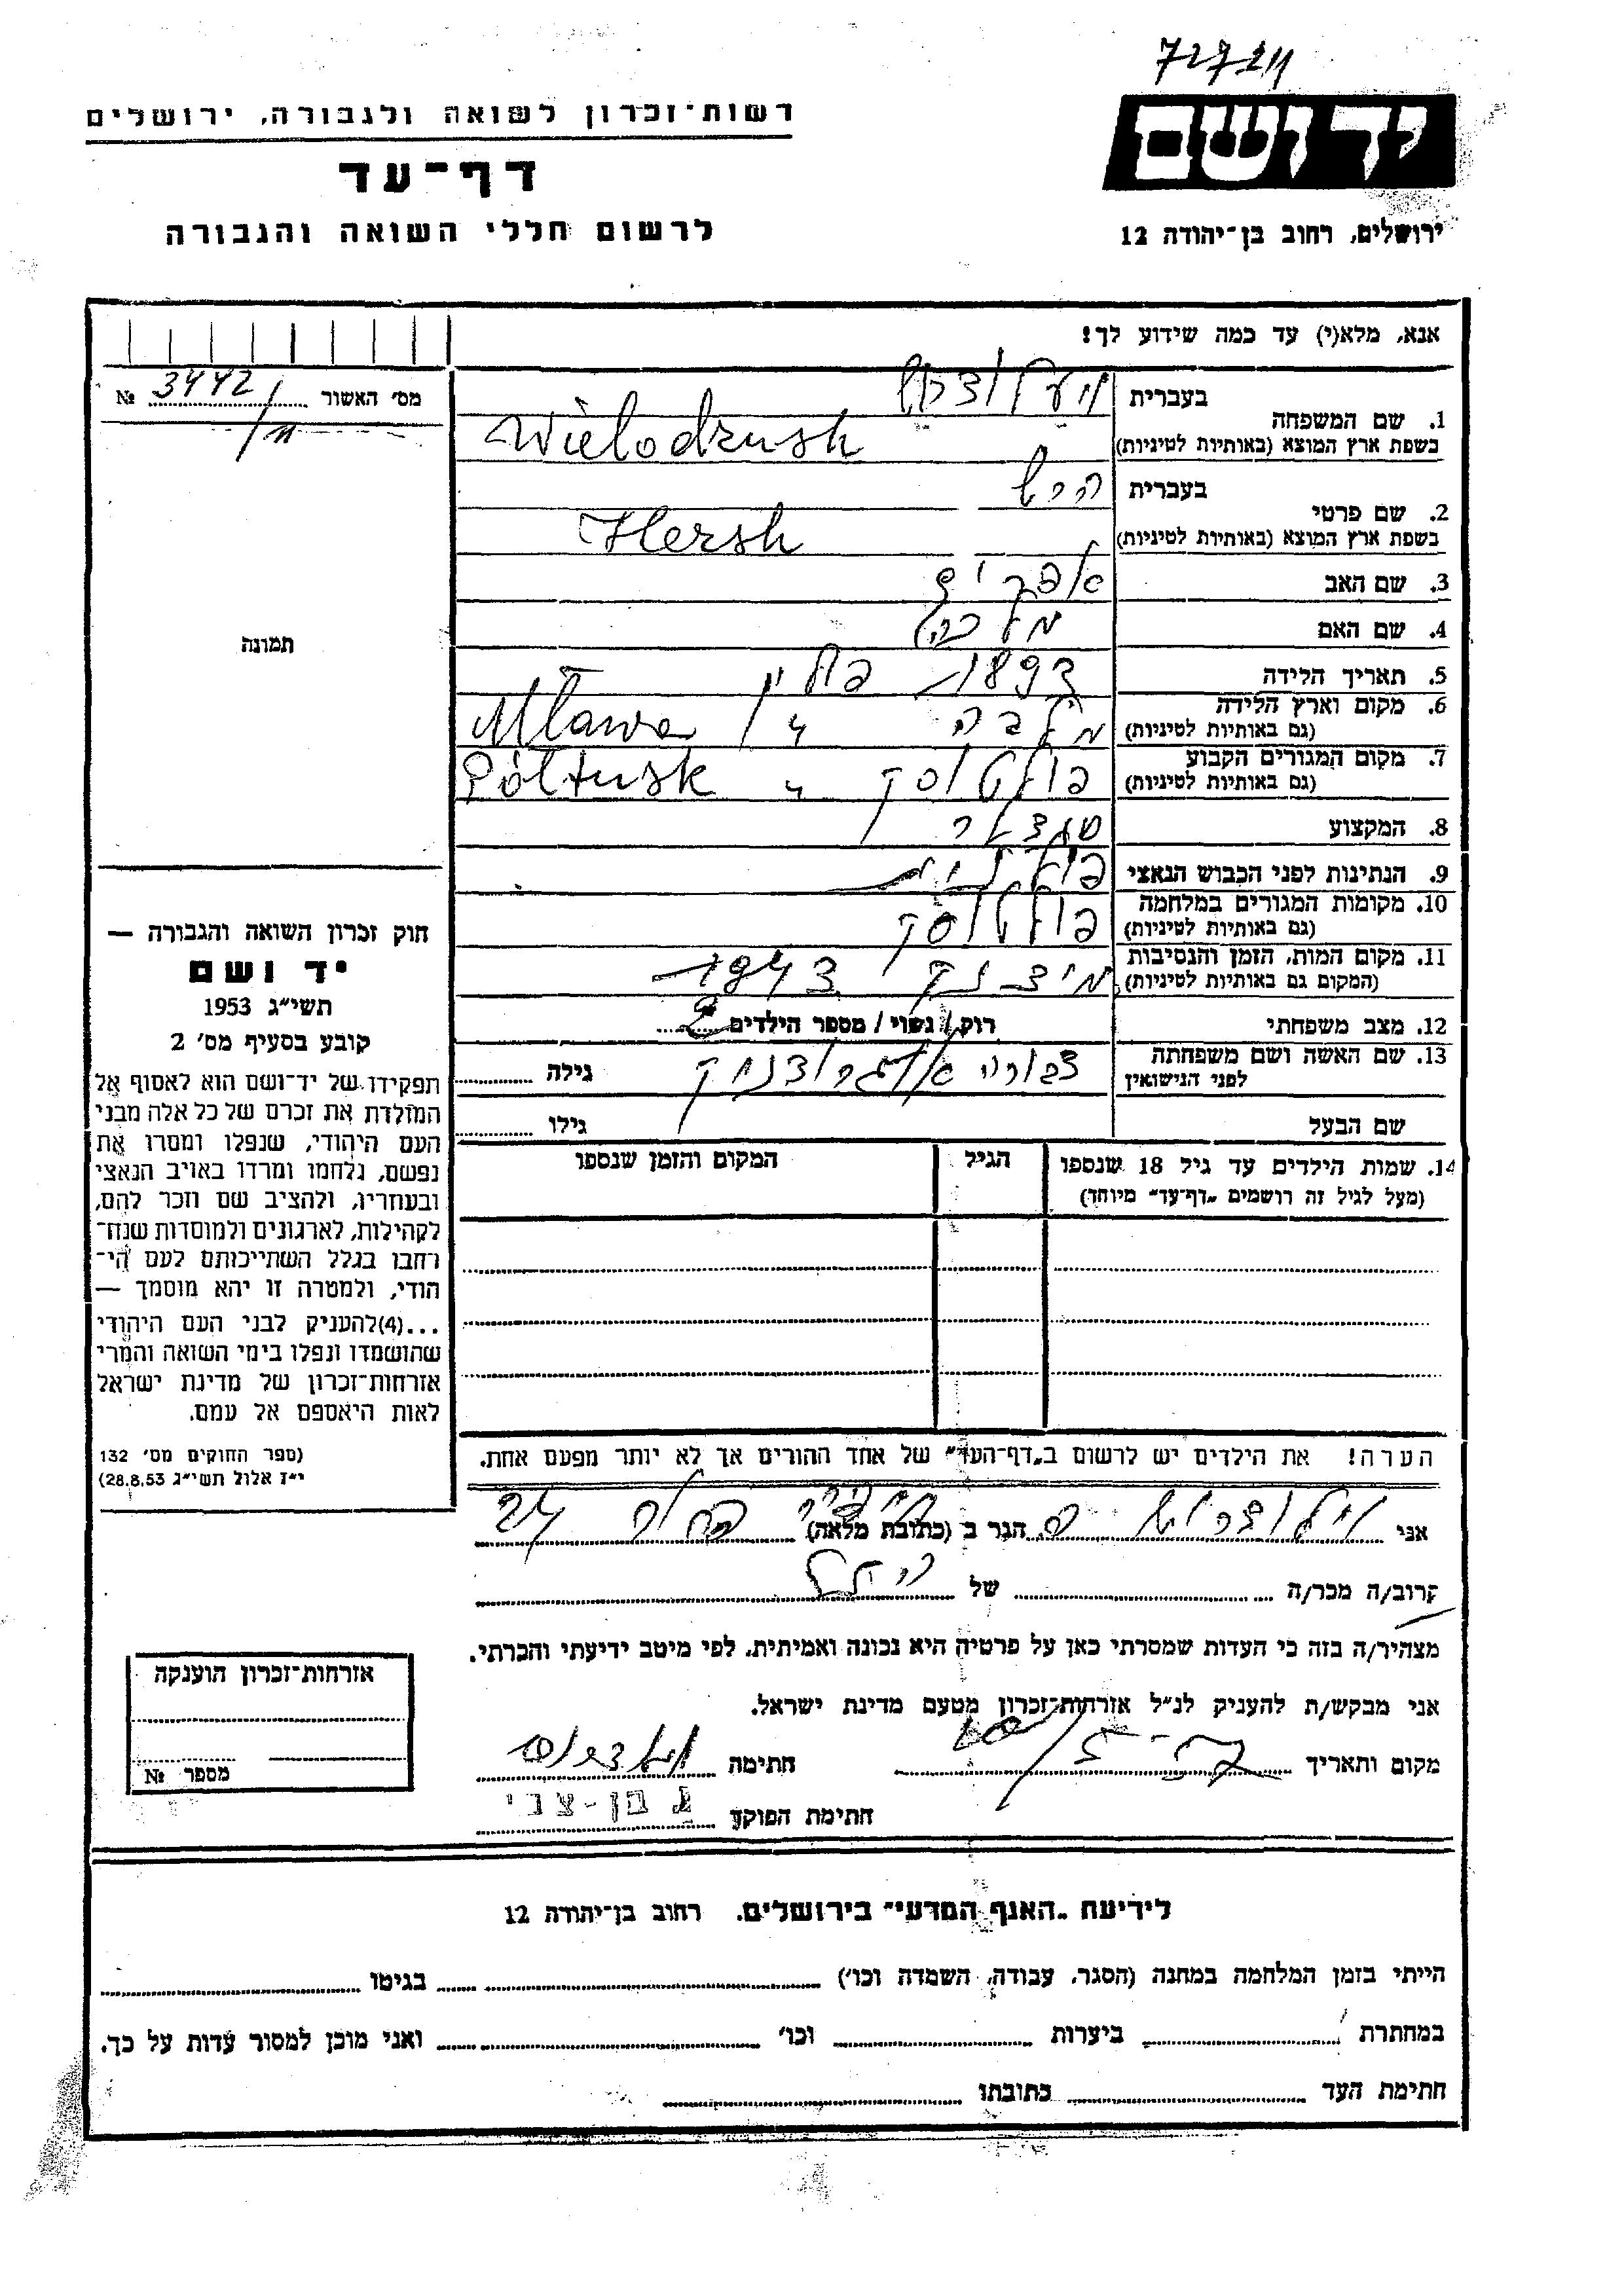 רשות־זכרון לשואה ולגבורה, ירושלים
יד ושם
דף־עד
לרשום חללי השואה והגבורה
ירושלים, רחוב בן־יהודה 12
אנא, מלא(י) עד כמה שידוע לך!
מס׳ האשור № 3442
תמונה
1. שם המשפחה
בעברית
בשפת ארץ המוצא (באותיות לטיניות) Wielodrush
2. שם פרטי
בעברית הרש
בשפת ארץ המוצא (באותיות לטיניות) Hersh
3. שם האב אפרים
4. שם האם מלכה
5. תאריך הלידה 1893 פולין
6. מקום וארץ הלידה
(גם באותיות לטיניות) מלבה " Mława
7. מקום המגורים הקבוע
(גם באותיות לטיניות) פולטוסק " Półtusk
8. המקצוע
9. הנתינות לפני הכבוש הנאצי פולנית
10. מקומות המגורים במלחמה
(גם באותיות לטיניות) פולטוסק
11. מקום המות, הזמן והנסיבות
(המקום גם באותיות לטיניות) 1943
12. מצב משפחתי רוק / נשוי / מספר הילדים 2
13. שם האשה ושם משפחתה
לפני הנישואין צפורה גילה
שם הבעל גילו
14. שמות הילדים עד גיל 18 שנספו
(מעל לגיל זה רושמים „דף־עד" מיוחד)
הגיל
המקום והזמן שנספו
חוק זכרון השואה והגבורה —
יד ושם
תשי״ג 1953
קובע בסעיף מס׳ 2
תפקידו של יד־ושם הוא לאסוף אל
המולדת את זכרם של כל אלה מבני
העם היהודי, שנפלו ומסרו את
נפשם, נלחמו ומרדו באויב הנאצי
ובעוזריו, ולהציב שם וזכר להם,
לקהילות, לארגונים ולמוסדות שנח־
רחבו בגלל השתייכותם לעם הי־
הודי, ולמטרה זו יהא מוסמך —
...(4)להעניק לבני העם היהודי
שהושמדו ונפלו בימי השואה והמרי
אזרחות־זכרון של מדינת ישראל
לאות היאספם אל עמם.
(ספר החוקים מס׳ 132
י״ז אלול תשי״ג 28.8.53)
הערה! את הילדים יש לרשום ב„דף־העד" של אחד ההורים אך לא יותר מפעם אחת.
אני הגר ב (כתובת מלאה) 24
קרוב/ה מכר/ה של
מצהיר/ה בזה כי העדות שמסרתי כאן על פרטיה היא נכונה ואמיתית, לפי מיטב ידיעתי והכרתי.
אני מבקש/ת להעניק לנ״ל אזרחות־זכרון מטעם מדינת ישראל.
מקום ותאריך חתימה
חתימת הפוקד בן-צבי
אזרחות־זכרון הוענקה
מספר №
לידיעת „האגף המדעי" בירושלים, רחוב בן־יהודה 12
הייתי בזמן המלחמה במחנה (הסגר, עבודה, השמדה וכו׳) בגיטו
במחתרת ביערות וכו׳ ואני מוכן למסור עדות על כך.
חתימת העד כתובתו